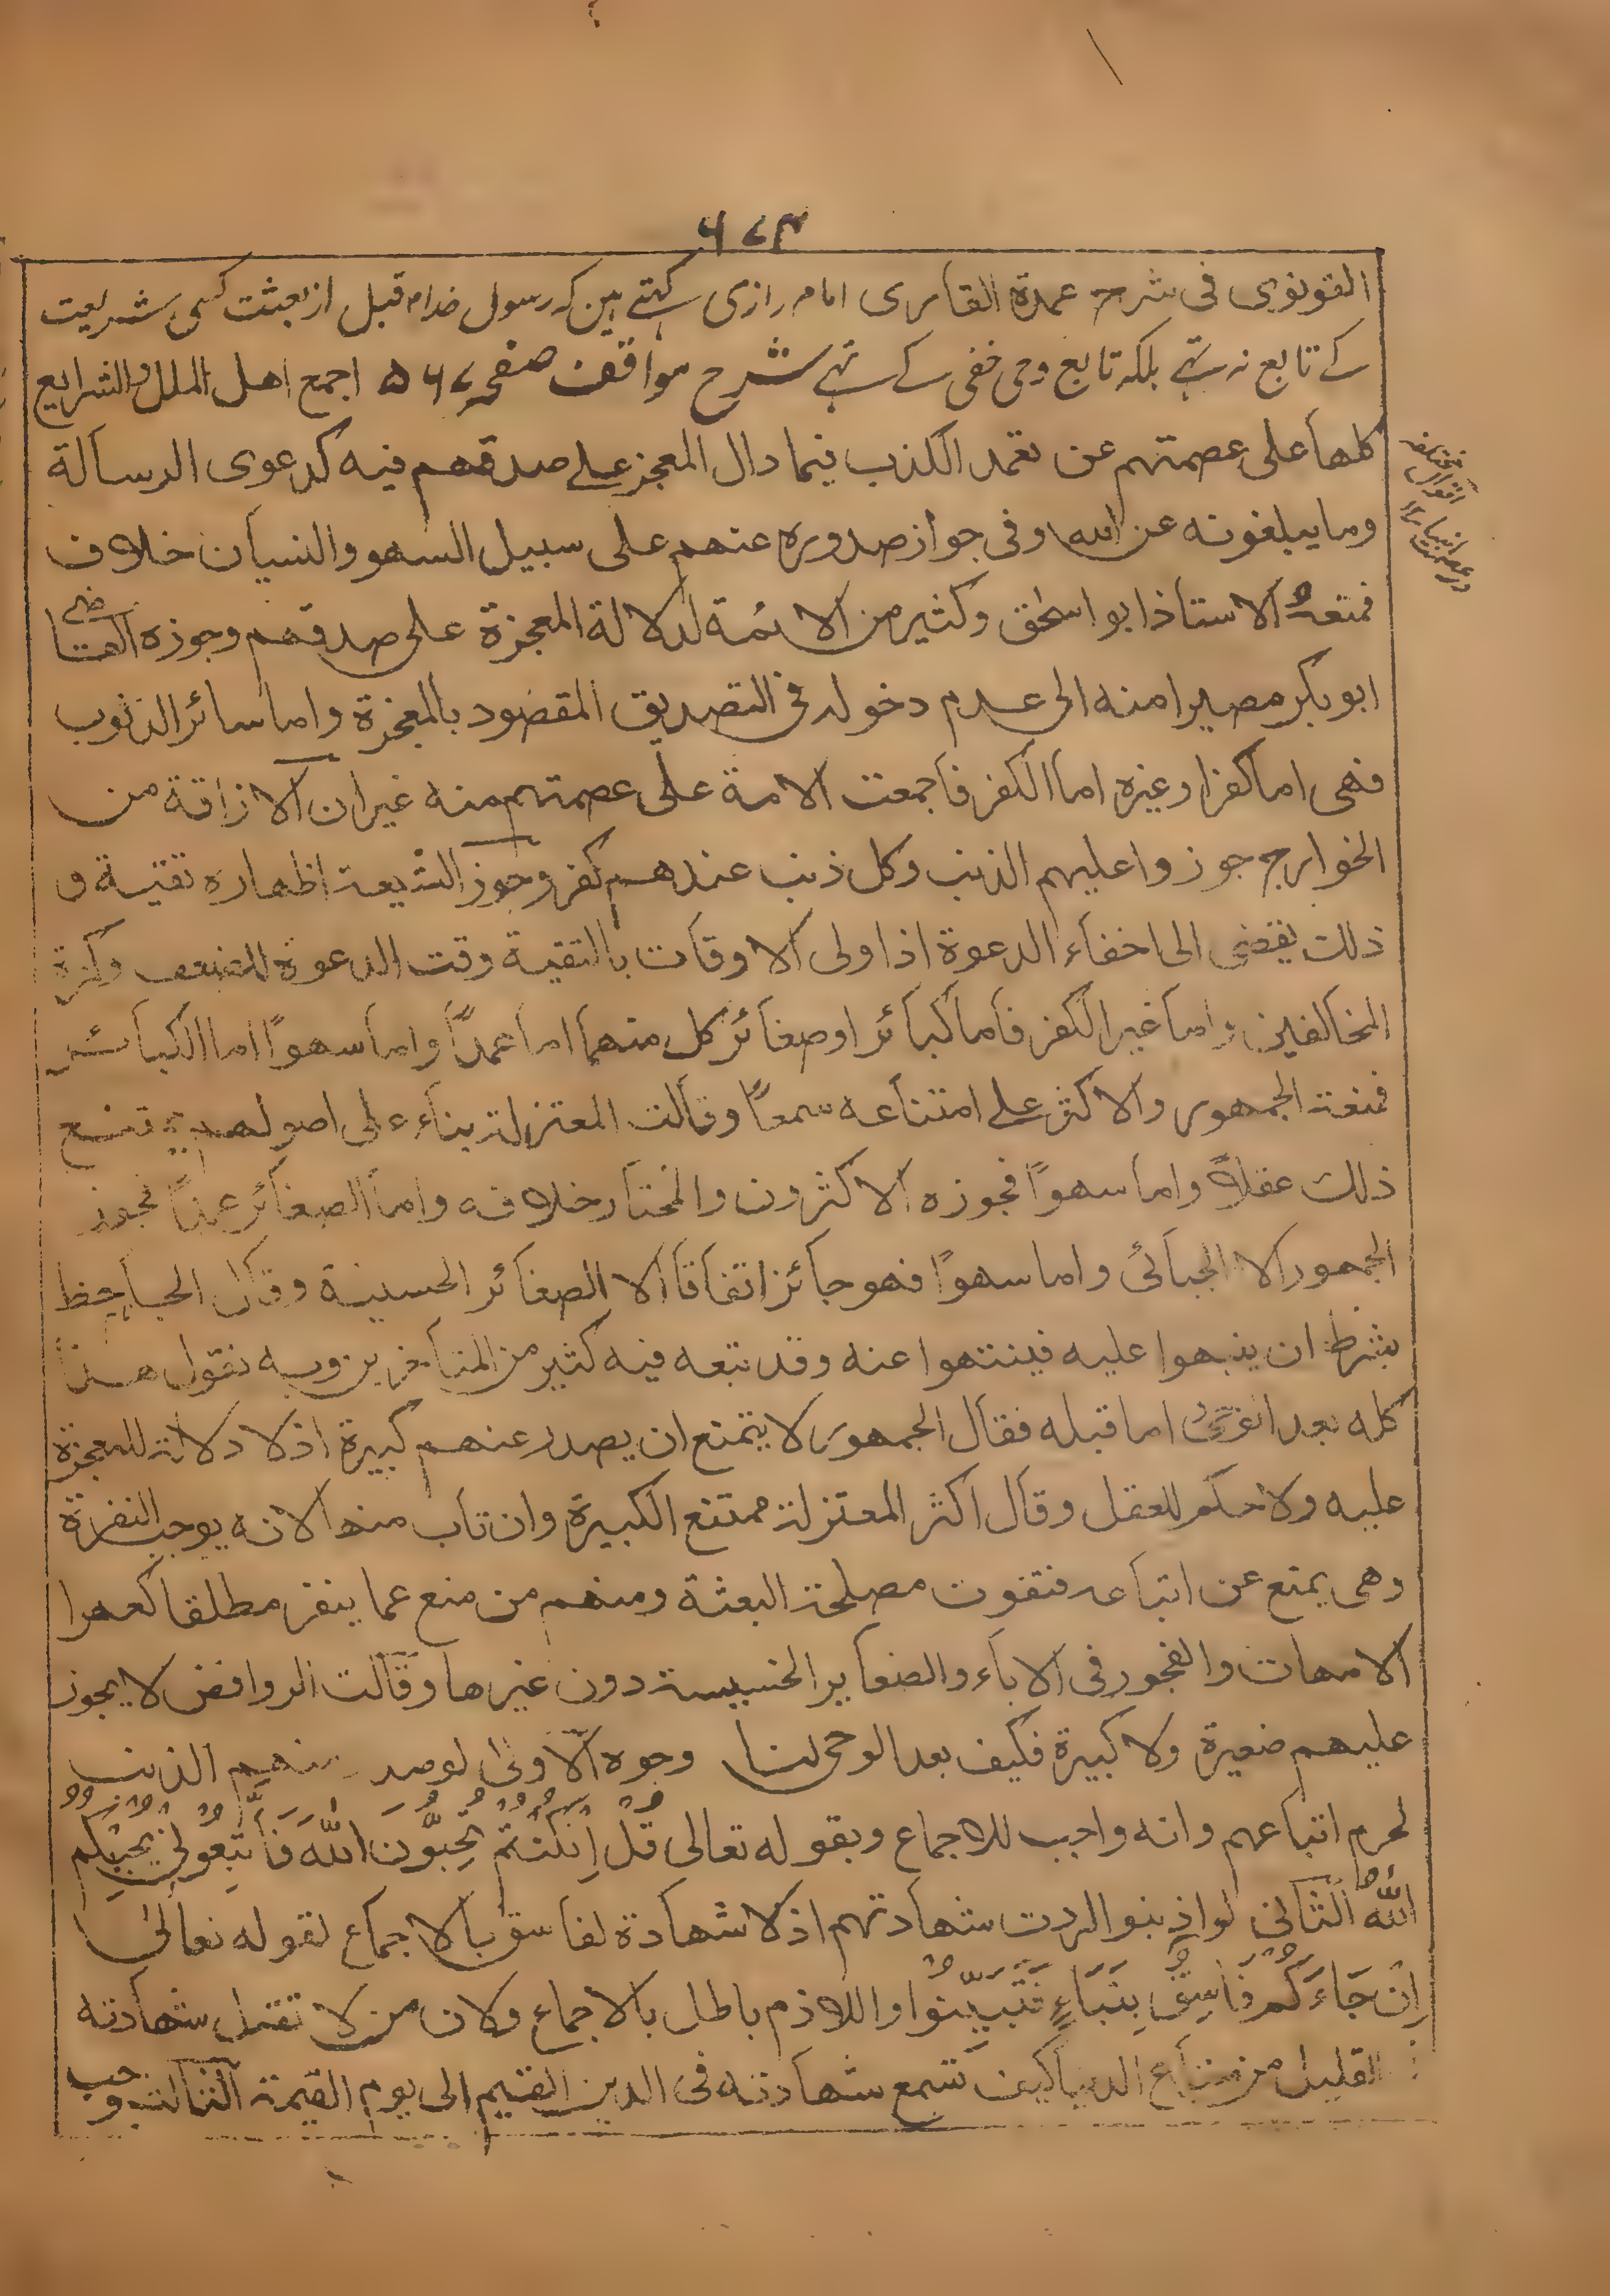 ۶۷۳
القونوی فی شرح عمدة القاری امام رازی کہتے ہین کہ رسول خدام قبل از بعثت کسی شریعت
کے تابع نہ تہے بلکہ تابع وحی خفی کے تہے شرح مواقف صفحہ ۵۶۷ اجمع اهل الملل والشرایع
کلها علی عصمتهم عن تعمد الکذب فیما دال المعجز علے صدقهم فیه کدعوی الرسالة
وما یبلغونه عن الله وفی جواز صدوره عنهم علی سبیل السهو والنسیان خلاف
فمنعه الاستاذ ابو اسحٰق وکثیر من الائمة لدلالة المعجزة علی صدقهم وجوزه القاضی
ابو بکر مصیرا منه الی عدم دخوله فی التصدیق المقصود بالمعجزة واما سائر الذنوب
فهی اما کفر او غیره اما الکفر فاجمعت الامة علی عصمتهم منه غیر ان الازاقة من
الخوارج جوزوا علیهم الذنب وکل ذنب عندهم کفر وجوز الشیعة اظهاره تقیة و
ذلک یفضی الی اخفاء الدعوة اذ اولی الاوقات بالتقیة وقت الدعوة للضعف وکثرة
المخالفین واما غیر الکفر فاما کبائر او صغائر کل منهما اما عمدًا واما سهوًا اما الکبائر
فمنعه الجمهور والاکثر علے امتناعه سمعًا وقالت المعتزلة بناء علی اصولهم یمتنع
ذلک عقلاً واما سهوًا فجوزه الاکثرون والمختار خلافه واما الصغائر عمدًا فجوزه
الجمهور الا الجبائی واما سهوًا فهو جائز اتفاقا الا الصغائر الخسیسة وقال الجاحظ
بشرط ان ینبهوا علیه فینتهوا عنه وقد تبعه فیه کثیر من المتأخرین وبه نقول هذا
کله بعد الوحی اما قبله فقال الجمهور لا یمتنع ان یصدر عنهم کبیرة اذ لا دلالة للمعجزة
علیه ولا حکم للعقل وقال اکثر المعتزلة ممتنع الکبیرة وان تاب منها لانه یوجب النفرة
وهی یمنع عن اتباعه فتفوت مصلحة البعثة ومنهم من منع عما ینفر مطلقا کعهر
الامهات والفجور فی الاباء والصغایر الخسیسة دون غیرها وقالت الروافض لا یجوز
علیهم صغیرة ولا کبیرة فکیف بعد الوحی لنا وجوه الاولیٰ لو صدر منهم الذنب
لحرم اتباعهم وانه واجب للاجماع وبقوله تعالی قُلْ اِنْ کُنْتُمْ تُحِبُّوْنَ اللّٰهَ فَاتَّبِعُوْنِیْ یُحْبِبْکُمُ
اللّٰهُ الثانی لو اذنبوا لردت شهادتهم اذ لا شهادة لفاسق بالاجماع لقوله تعالیٰ
اِنْ جَاءَکُمْ فَاسِقٌ بِنَبَاءٍ فَتَبَیَّنُوْا واللازم باطل بالاجماع ولان من لا تقبل شهادته
القلیل من متاع الدنیا کیف تسمع شهادته فی الدین القیم الی یوم القیمة الثالث وجب